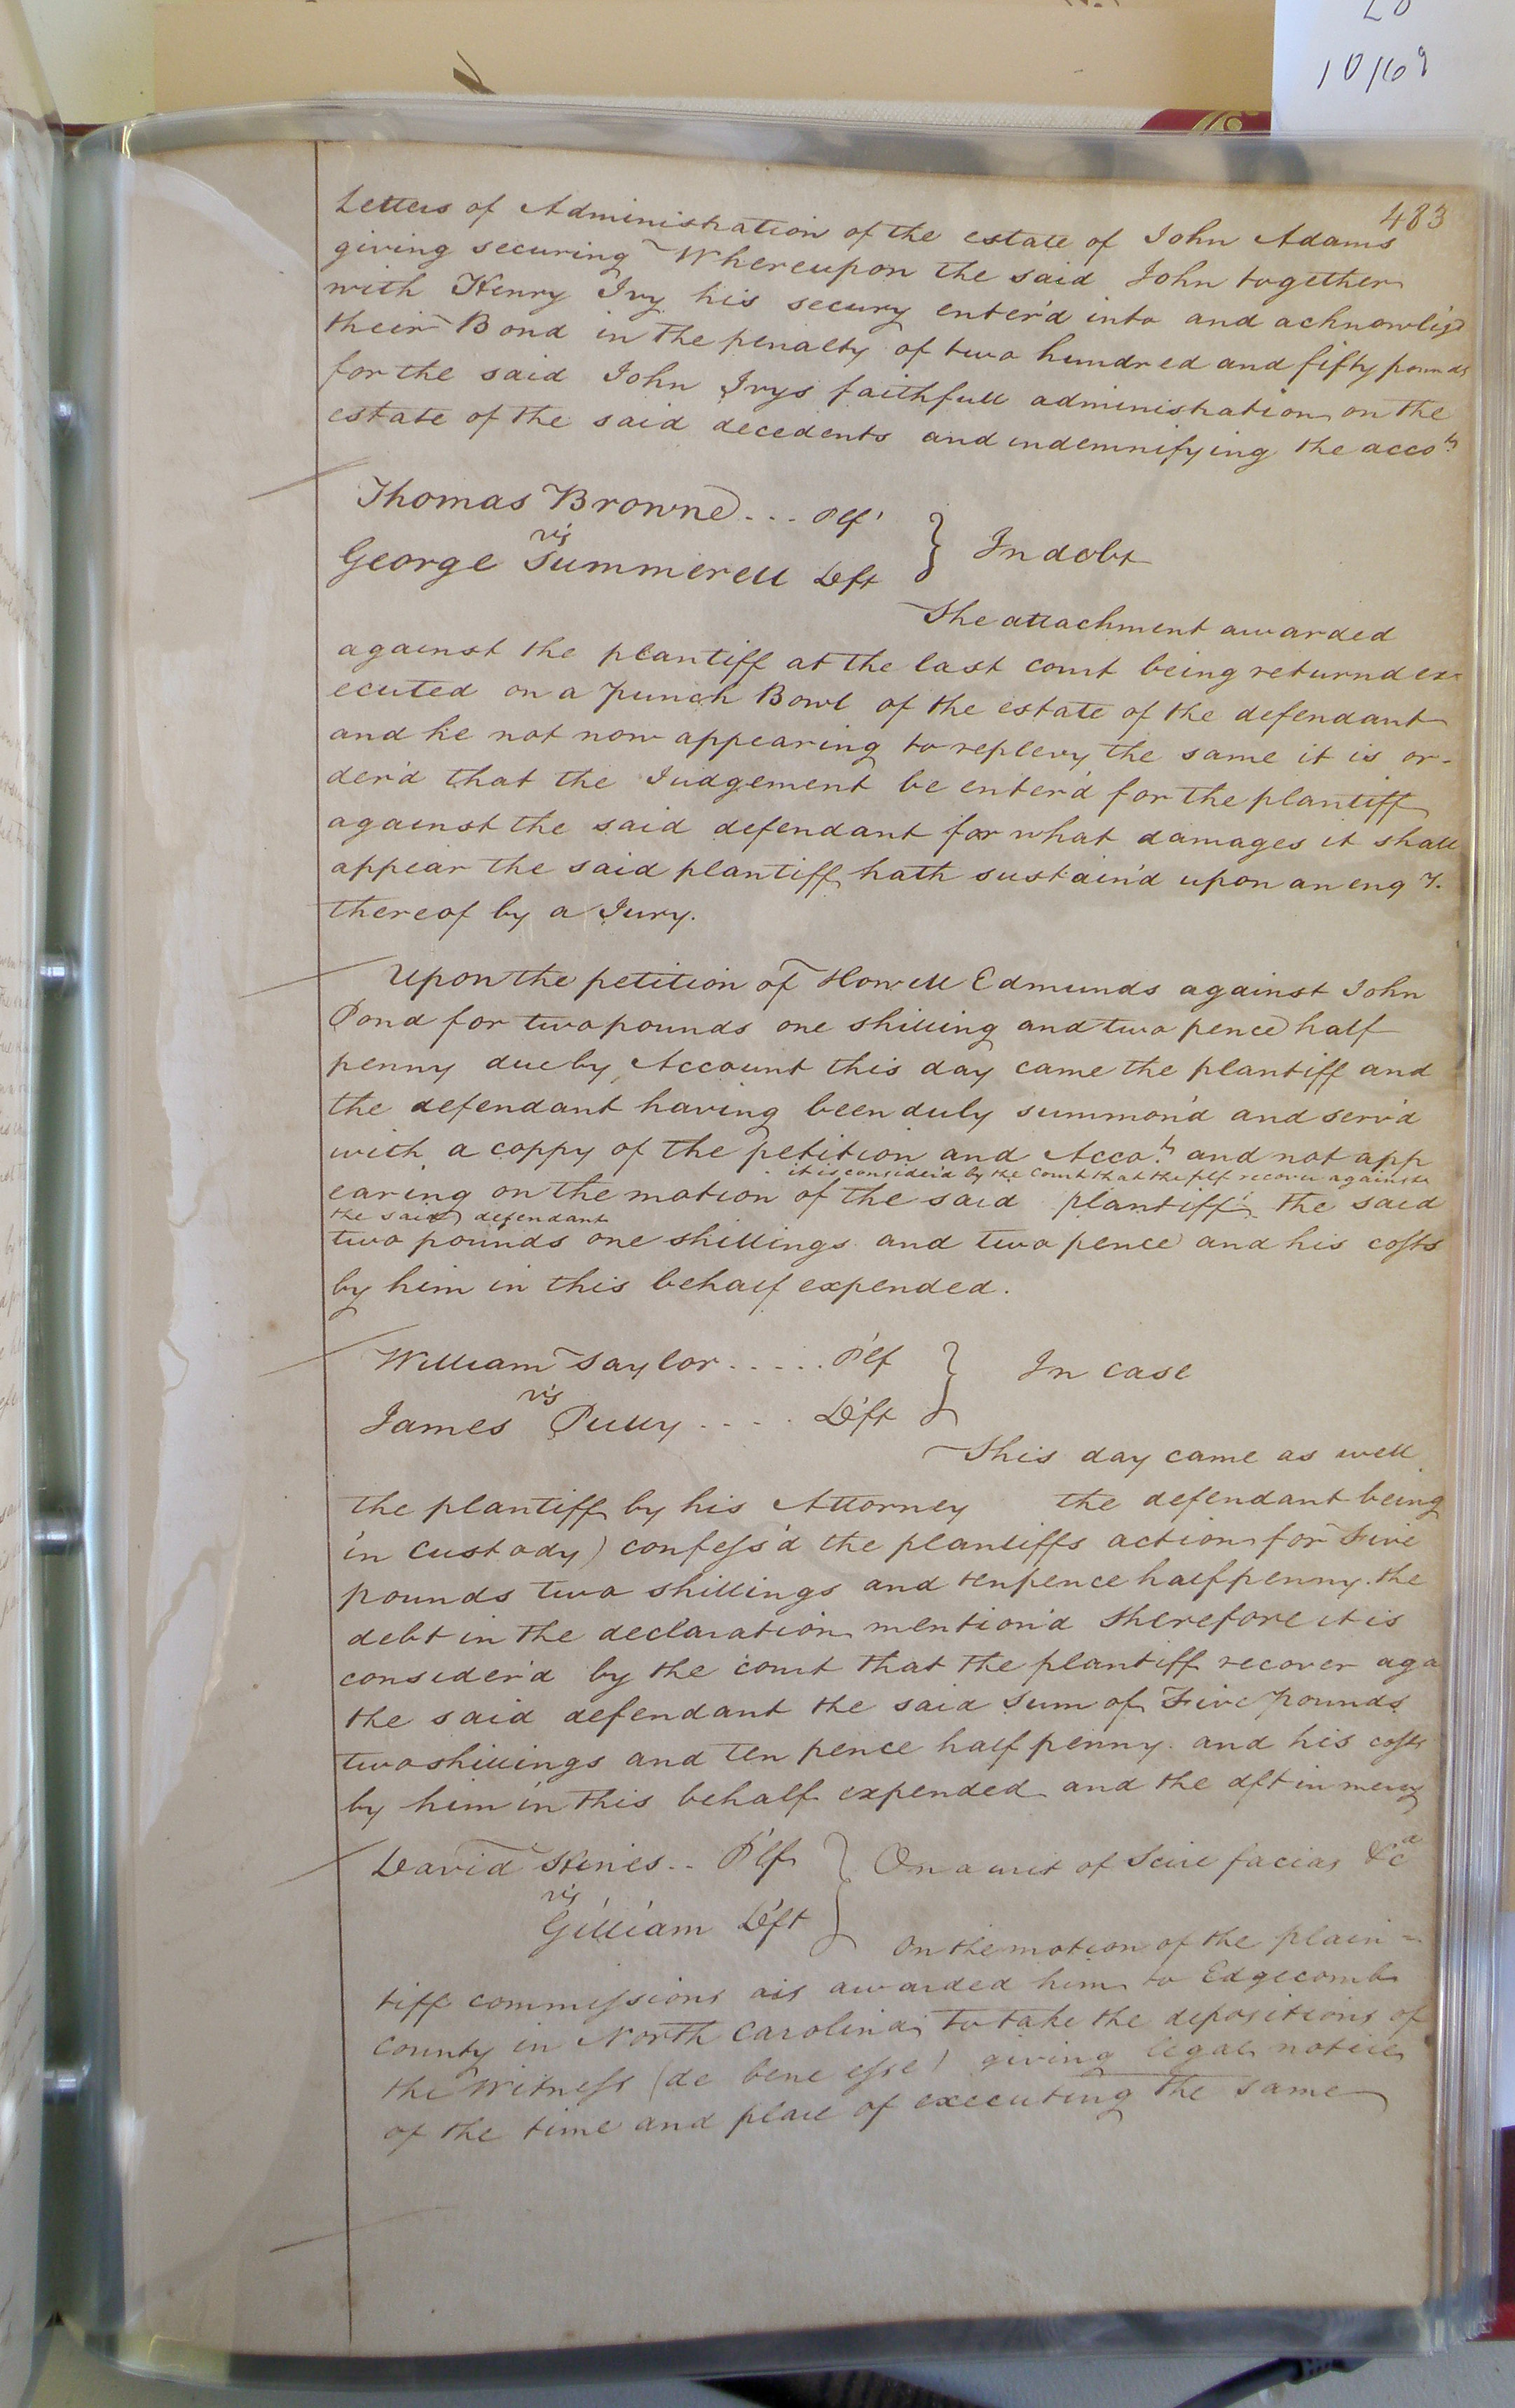 10/169
483
Letters of Administration of the estate of John Adams
giving securing Whereupon the said John together
with Henry Ivy his secury enter'd into and acknowligd
their Bond in the penalty of two hundred and fifty pounds
for the said John Ivys faithfull administration on the
estate of the said decedents and indemnifying the acco.ts
Thomas Browne... Plf'
vs
George Summerell Deft } In debt
The attachment awarded
against the plantiff at the last court being returnd ex-
ecuted on a punch Bowl of the estate of the defendant
and he not now appearing to replevy the same it is or-
der'd that the Judgement be enter'd for the plantiff
against the said defendant for what damages it shall
appear the said plantiff hath sustain'd upon an enq y.
thereof by a Jury.
Upon the petition of Howell Edmunds against John
Pond for two pounds one shilling and two pence half
penny due by Account this day came the plantiff and
the defendant having been duly summon'd and serv'd
with a coppy of the petition and Acco.t and not app
it is consider'd by the Court that the plf recover against
earing on the motion of the said plantiff the said
the said defendant
two pounds one shillings and two pence and his costs
by him in this behalf expended.
William Taylor..... Plf } In case
vs
James Pully.... Deft
This day came as well
the plantiff by his Attorney the defendant being
in custody) confess'd the plantiffs action for Five
pounds two shillings and tenpence halfpenny. the
debt in the declaration mention'd therefore it is
consider'd by the court that the plantiff recover aga
the said defendant the said sum of Five pounds
two shillings and ten pence half penny. and his costs
by him in this behalf expended and the dft in mercy
David Hines.. Plf } On a writ of Scire facias &ca
vs
Gilliam Deft
On the motion of the plain=
tiff commissions ais awarded him to Edgecomb
County in North Carolina to take the depositions of
the Witness (de bene esse) giving legal notice
of the time and place of executing the same